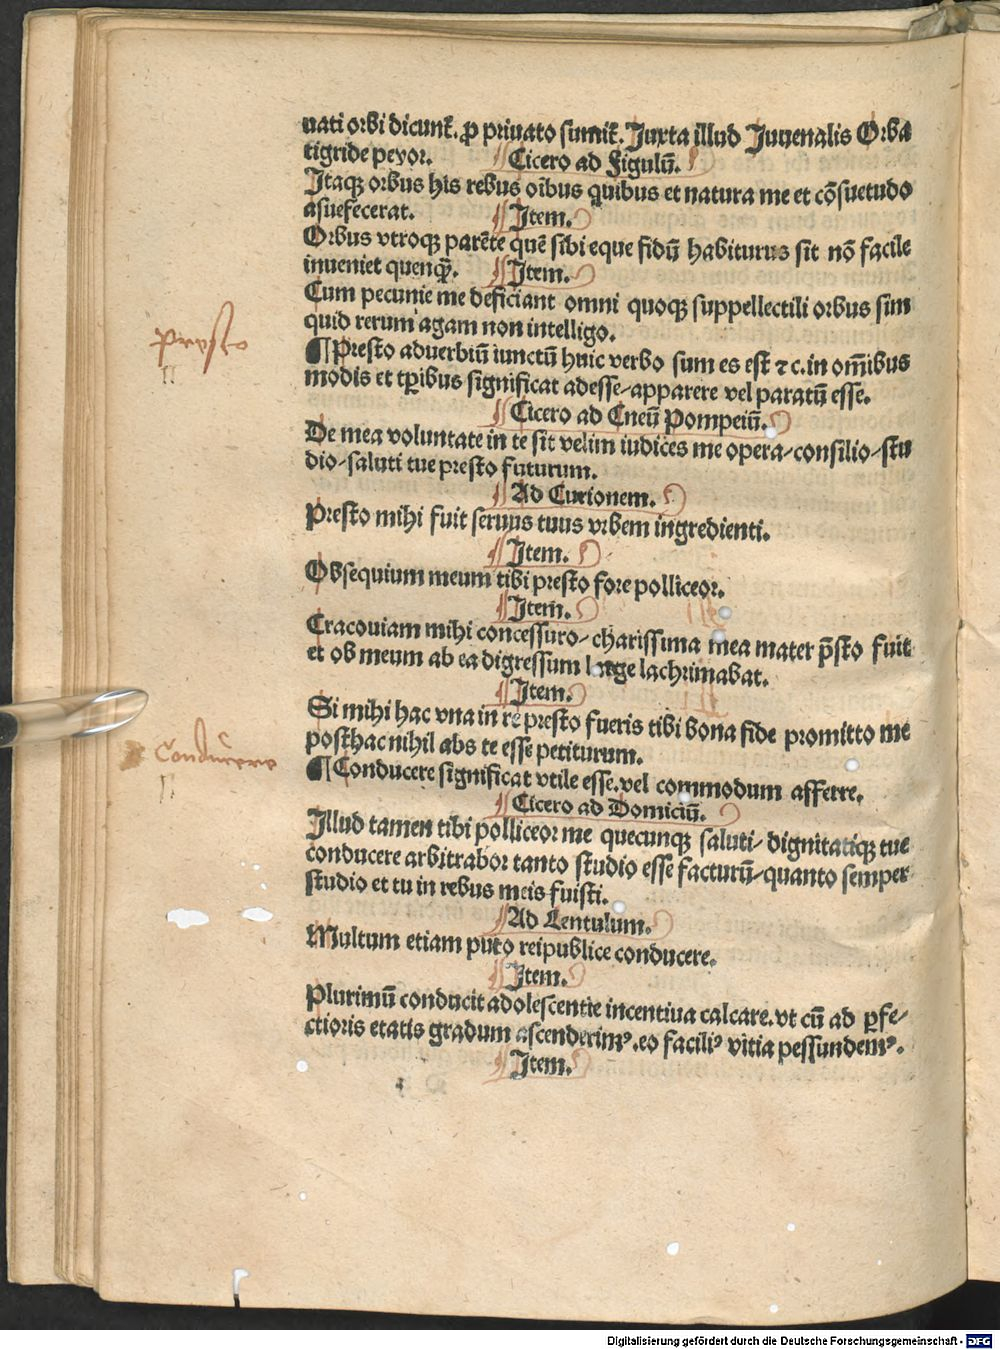 uati orbi dicunt̃. ꝓ priuato sumit̃. Juxta illud Juuenalis Orba
tigride peyor. ¶ Cicero ad Figulū.
Itaqꝫ orbus his rebus oībus quibus et natura me et cōsuetudo
asuefecerat. ¶ Item.
Orbus vtroqꝫ parēte quē sibi eque fidū habiturus sit nō facile
inueniet quenqꝫ̄. ¶ Item.
Cum pecunie me deficiant omni quoqꝫ suppellectili orbus sim
quid rerum agam non intelligo.
¶ Presto aduerbiū iunctū huic verbo sum es est ⁊ c. in om̄ibus
modis et tꝑibus significat adesse/apparere vel paratū esse.
¶ Cicero ad Cneū Pompeiū.
De mea voluntate in te sit velim iudices me opera/consilio/stu
dio/saluti tue presto futurum.
¶ Ad Curionem.
Presto mihi fuit seruus tuus vrbem ingredienti.
¶ Item.
Obsequium meum tibi presto fore polliceor.
¶ Item.
Cracouiam mihi concessuro/charissima mea mater p̄sto fuit
et ob meum ab ea digressum longe lachrimabat.
¶ Item.
Si mihi hac vna in re presto fueris tibi bona fide promitto me
posthac nihil abs te esse petiturum.
¶ Conducere significat vtile esse.vel commodum afferre.
¶ Cicero ad Domiciū.
Illud tamen tibi polliceor me quecunqꝫ saluti/dignitatiqꝫ tue
conducere arbitrabor tanto studio esse facturū/quanto semper
studio et tu in rebus meis fuisti.
¶ Ad Lentulum.
Multum etiam puto reipublice conducere.
¶ Item.
Plurimū conducit adolescentie incentiua calcare.vt cū ad ꝑfe/
ctioris etatis gradum ascenderimꝰ.eo faciliꝰ vitia pessundemꝰ.
¶ Item.
presto
Conducere
Digitalisierung gefördert durch die Deutsche Forschungsgemeinschaft - DFG